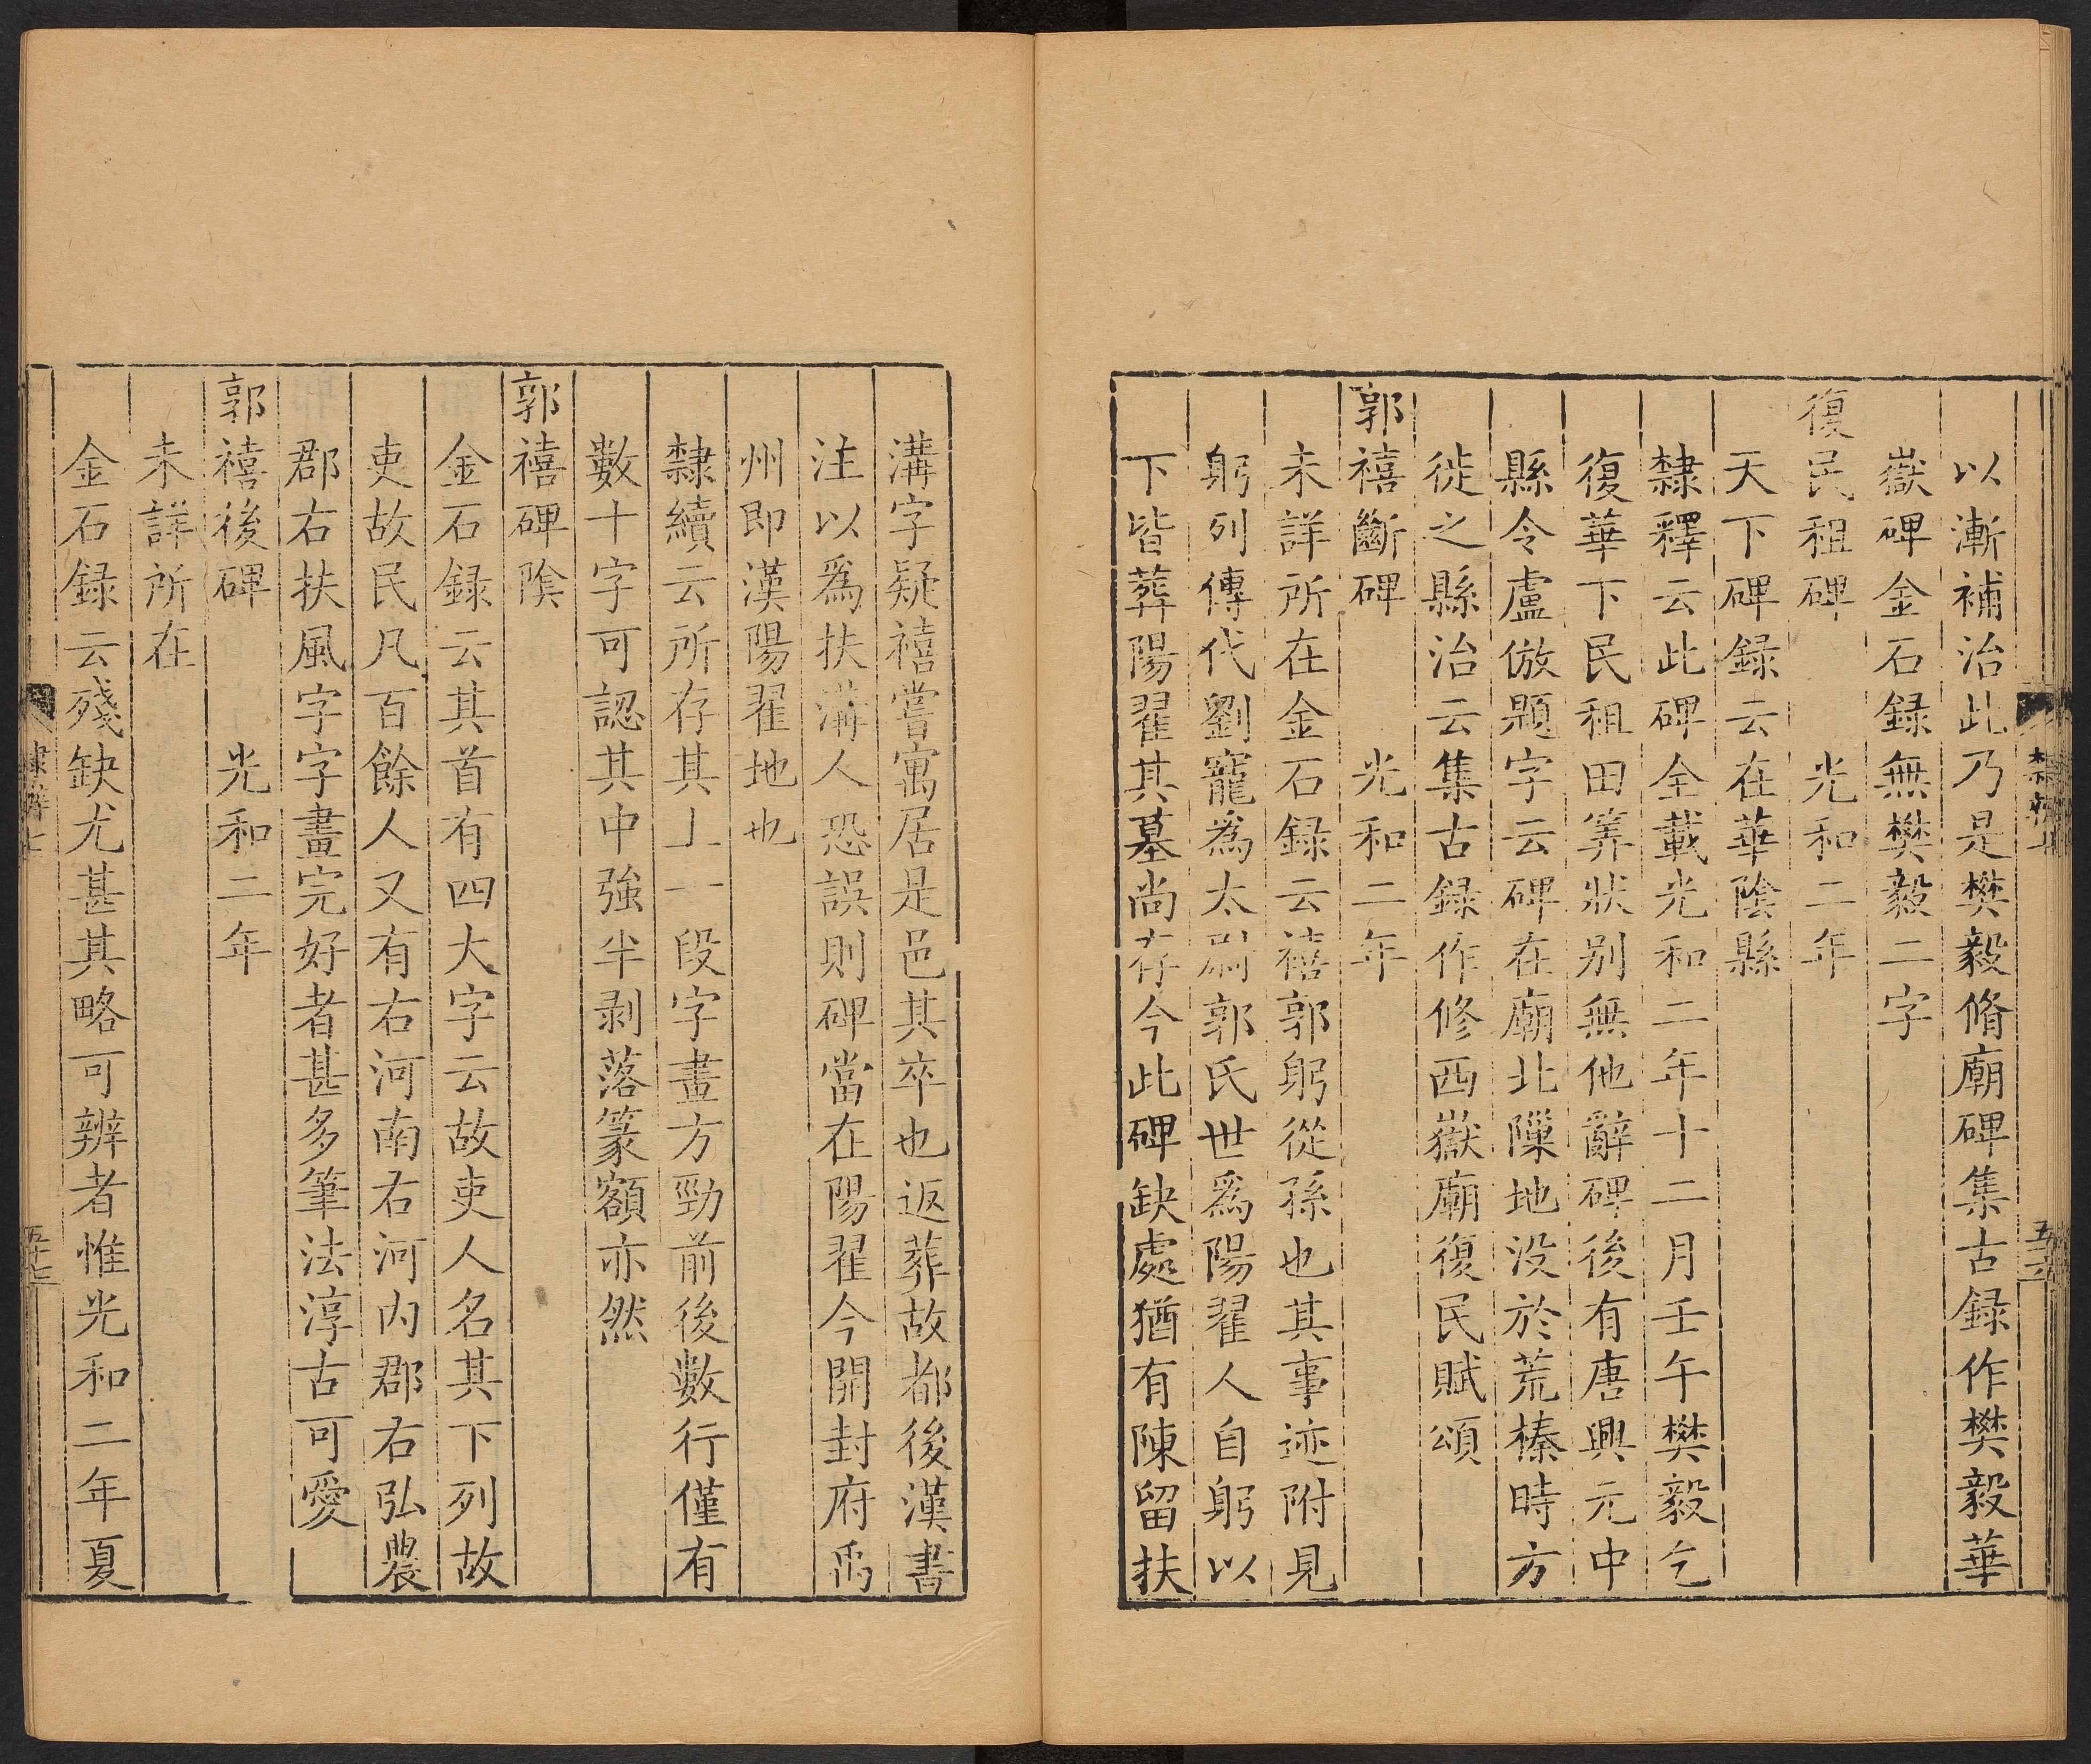 以漸補治此乃是樊毅脩廟碑集古録作樊毅華
嶽碑金石録無樊毅二字
復民租碑 光和二年
天下碑録云在華陰縣
隸釋云此碑全載光和二年十二月壬午樊毅乞
復華下民租田筭狀别無他辭碑後有唐興元中
縣令盧倣題字云碑在廟北隟地没於荒榛時方
徙之縣治云集古録作修西嶽廟復民賦頌
郭禧斷碑 光和二年
未詳所在金石録云禧郭躬從孫也其事迹附見
躬列傳代劉寵為太尉郭氏世爲陽翟人自躬以
下皆葬陽翟其墓尚存今此碑缺處猶有陳留扶
溝字疑禧嘗寓居是邑其卒也返葬故都後漢書
注以爲扶溝人恐誤則碑當在陽翟今開封府禹
州即漢陽翟地也
隸續云所存其上一段字畫方勁前後數行僅有
數十字可認其中強半剥落篆額亦然
郭禧碑陰
金石録云其首有四大字云故吏人名其下列故
吏故民凡百餘人又有右河南右河内郡右弘農
郡右扶風字字畫完好者甚多筆法淳古可愛
郭禧後碑 光和二年
未詳所在
金石録云殘缺尤甚其略可辨者惟光和二年夏